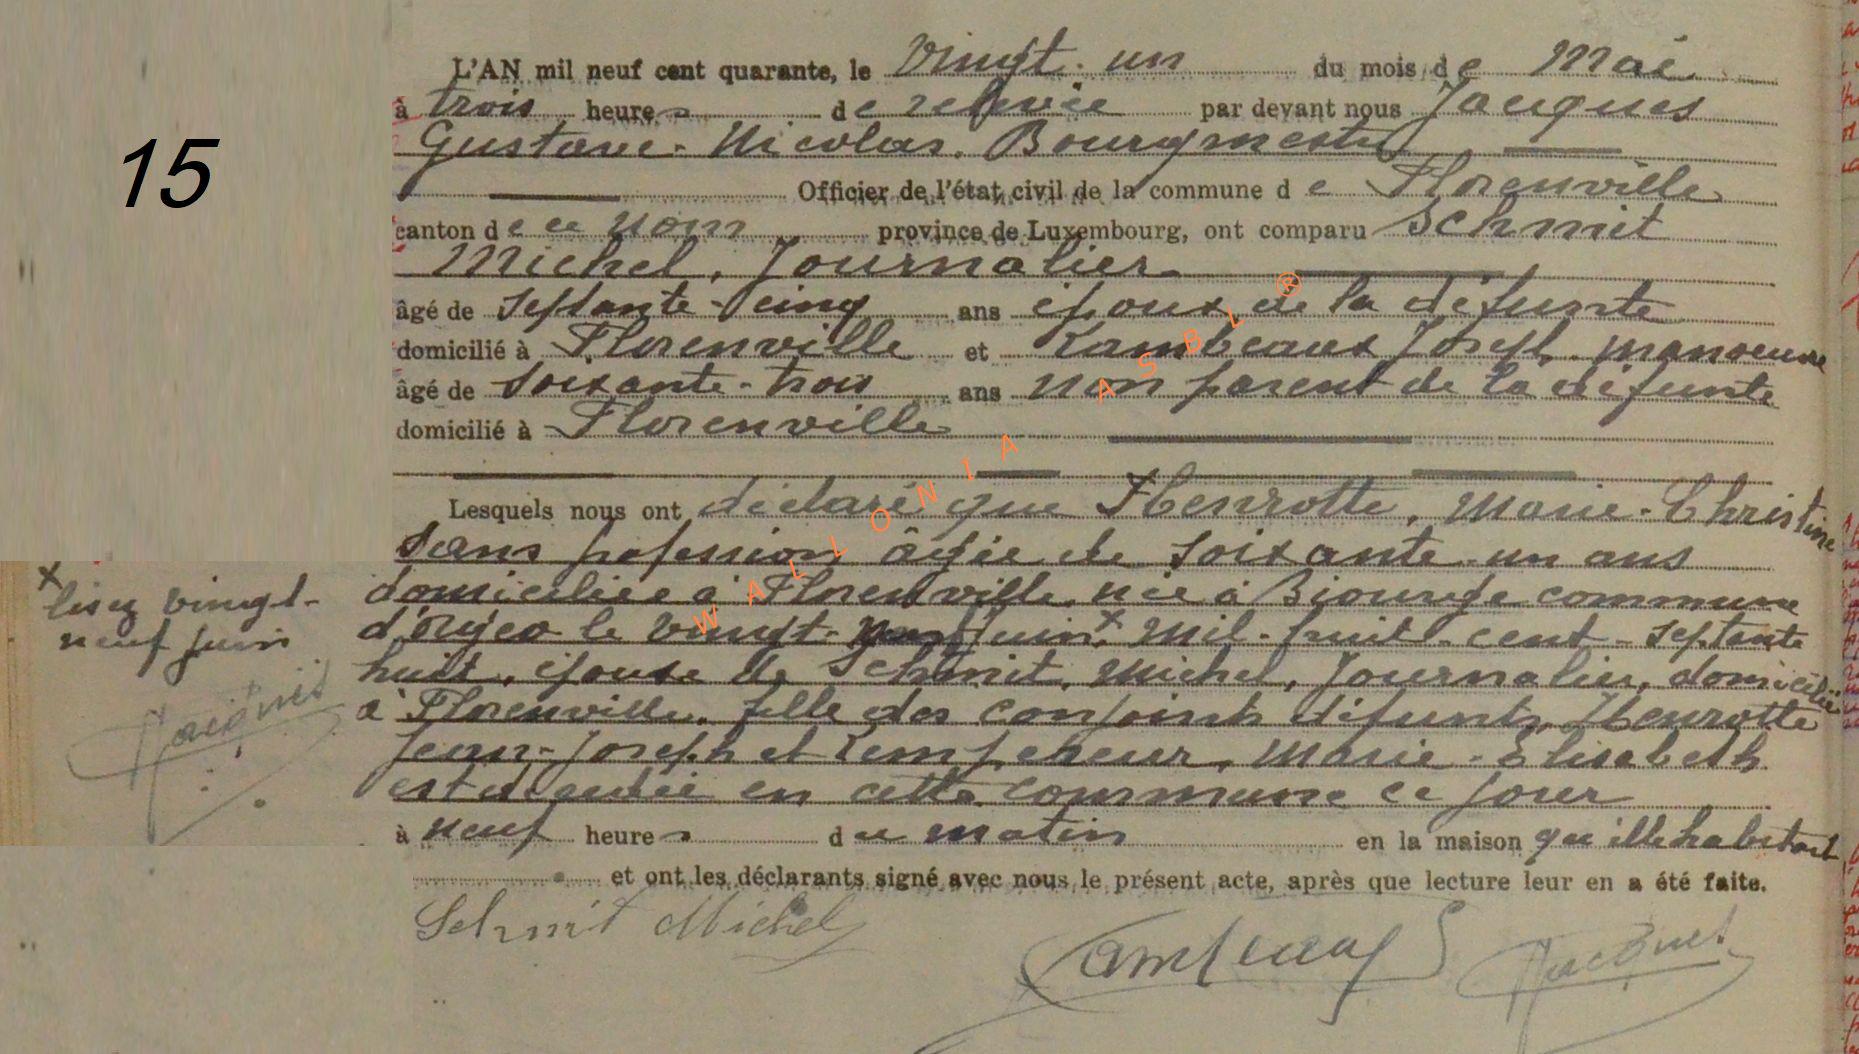 15
L'AN mil neuf cent quarante, le vingt-un du mois de Mai
à trois heures de relevée par devant nous Jacques
Gustave-Nicolas, Bourgmestre
Officier de l'état civil de la commune de Florenville
canton de ce nom province de Luxembourg, ont comparu Schmit
Michel, Journalier
âgé de septante-cinq ans époux de la défunte
domicilié à Florenville et Joseph manoeuvre
âgé de soixante-trois ans non parent de la défunte
domicilié à Florenville
Lesquels nous ont déclaré que Henrotte, Marie-Christine
sans profession, âgée de soixante-un ans
domiciliée à Florenville, née à Biourge commune
d'Orgeo le vingt juin x mil-huit-cent-septante
huit, épouse de Schmit, Michel, Journalier, domicilié
à Florenville, fille des conjoints défunts, Henrotte
Jean-Joseph et Lempereur, Marie-Elisabeth
est décédée en cette commune ce jour
à neuf heures du matin en la maison qu'elle habitait
et ont les déclarants signé avec nous le présent acte, après que lecture leur en a été faite.
x lisez vingt-
neuf juin
Schmit Michel
WALLONIA ASBL ®